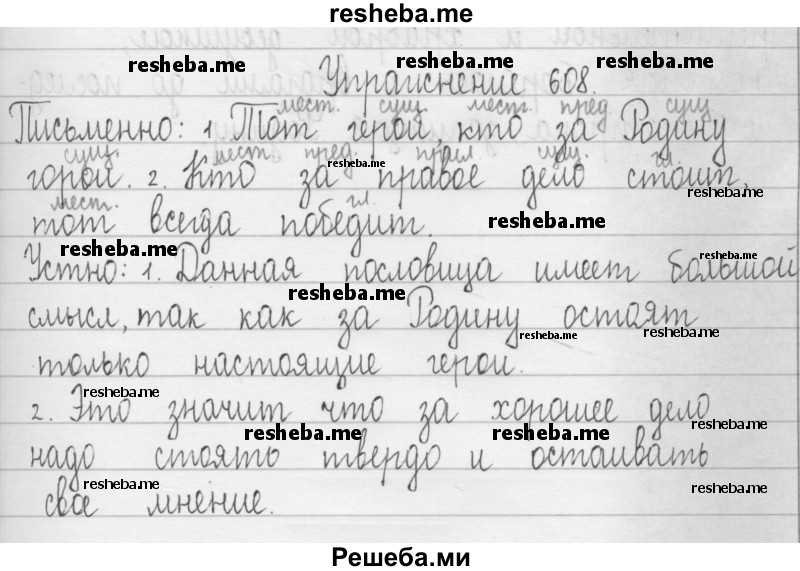 resheba.me
resheba.me resheba.me resheba.me
Упражнение 608.
мест. сущ. мест. пред. сущ.
Письменно: 1. Тот герой, кто за Родину
сущ. мест. пред. resheba.me прил. сущ. гл.
горой. 2. Кто за правое дело стоит,
resheba.me
мест. гл.
тот всегда победит. resheba.me
resheba.me resheba.me
Устно: 1. Данная пословица имеет большой
resheba.me
смысл, так как за Родину остоят
resheba.me resheba.me
только настоящие герои.
resheba.me
2. Это значит что за хорошее дело
resheba.me resheba.me resheba.me
надо стоять твердо и остаивать
resheba.me resheba.me
свое мнение.
Решеба.ми